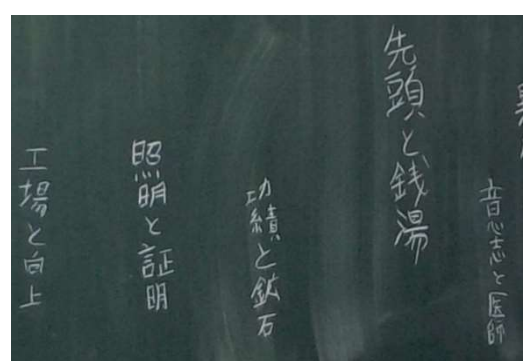 意志と医師
先頭と銭湯
功績と鉱石
照明と証明
工場と向上